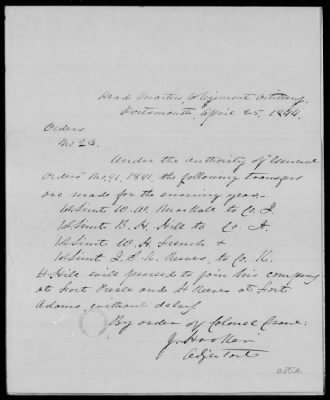 Head Quarters, 1st Regiment Artillery,
Portsmouth, April 25, 1844.
Orders
No 23.
Under the authority of General
Orders No, 1841 the following transfers
are made for the ensuing year.
1st Lieut W. W. Mackall to Co I.
1st Lieut B. H. Hill to Co A.
1st Lieut W. H. French &
1st Lieut I. S. K. Reeves, to Co K.
Lt Hill will proceed to join his company
at Fort Preble and Lt Reeves at Fort
Adams, without delay
By order of Colonel Crane:
J. Hooker
Adjutant